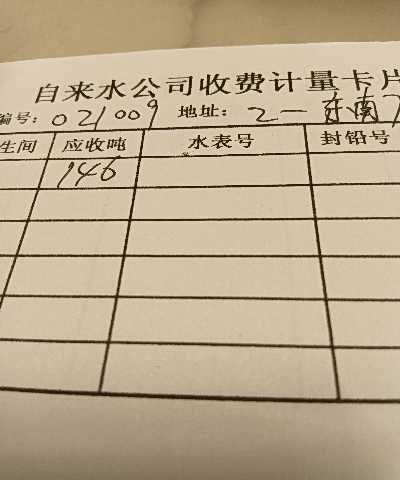 自来水公司收费计量卡片
编号: 021009 地址: 2一东南
生间 应收吨 水表号 封铅号
146